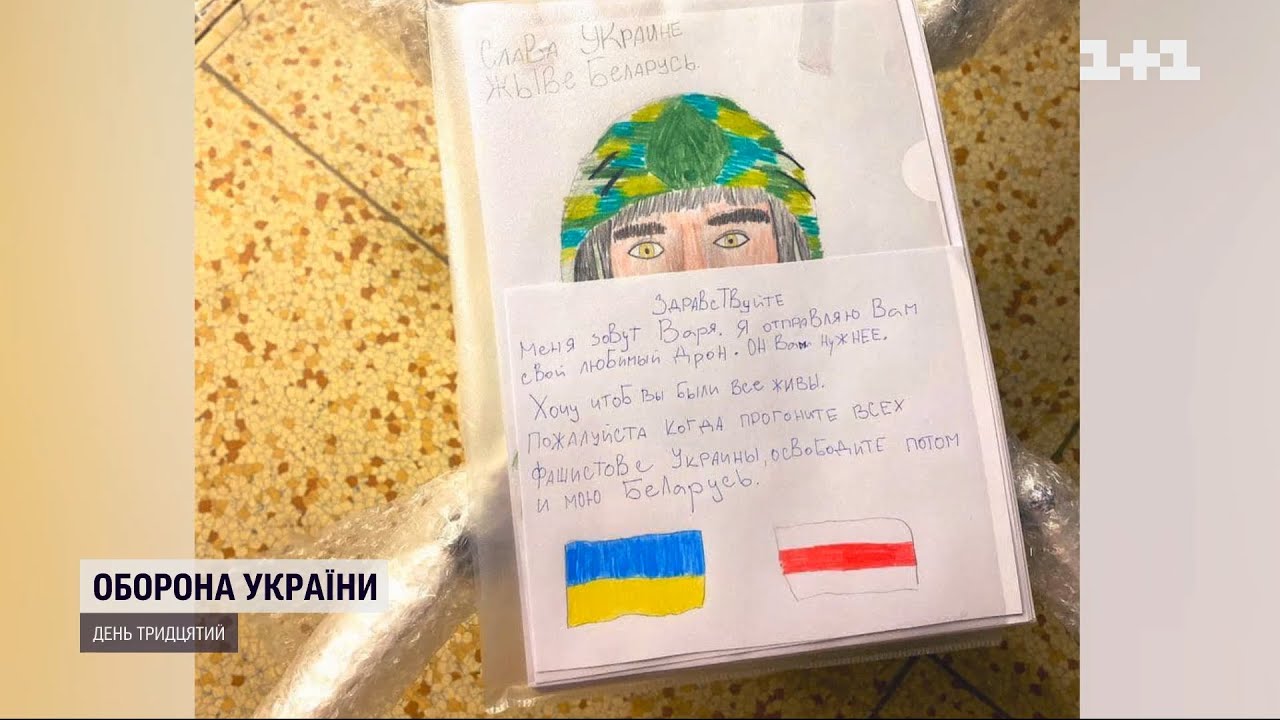 1+1
СЛАВА УКРАИНЕ
ЖЫВЕ БЕЛАРУСЬ.
ЗДРАВСТВУЙТЕ
Меня зовут Варя. Я отправляю Вам
свой любимый дрон. Он Вам нужнее.
Хочу чтоб вы были все живы.
Пожалуйста когда прогоните всех
фашистовс Украины, освободите потом
и мою Беларусь.
ОБОРОНА УКРАЇНИ
ДЕНЬ ТРИДЦЯТИЙ